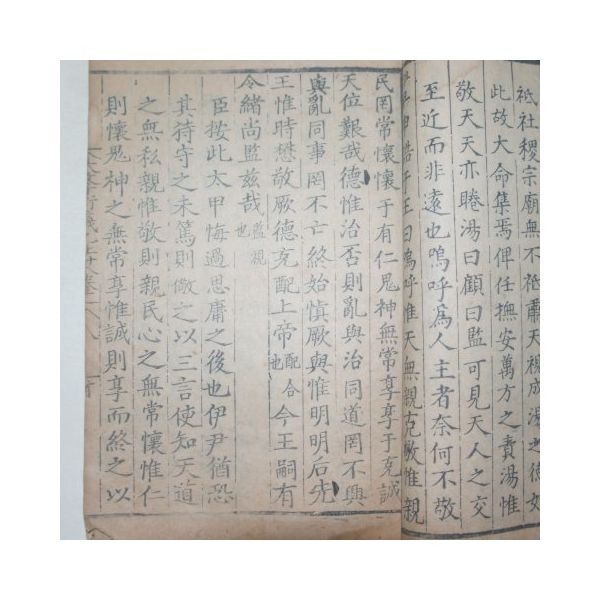 祗社稷宗廟無不祗肅天視成湯之德如
此故大命集焉俾任撫安萬方之責湯惟
敬天天亦睠湯曰顧曰監可見天人之交
至近而非遠也嗚呼爲人主者奈何不敬
誥于王曰嗚呼惟天無親克敬惟親
民罔常懷懷于有仁鬼神無常享享于克誠
天位艱哉德惟治否則亂與治同道罔不興
與亂同事罔不亡終始愼厥與惟明明后先
王惟時懋敬厥德克配上帝配合也今王嗣有
令緖尚監玆哉監視也
臣按此太甲悔過思庸之後也伊尹猶恐
其持守之未篤則儆之以三言使知天道
之無私親惟敬則親民心之無常懷惟仁
則懷鬼神之無常享惟誠則享而終之以